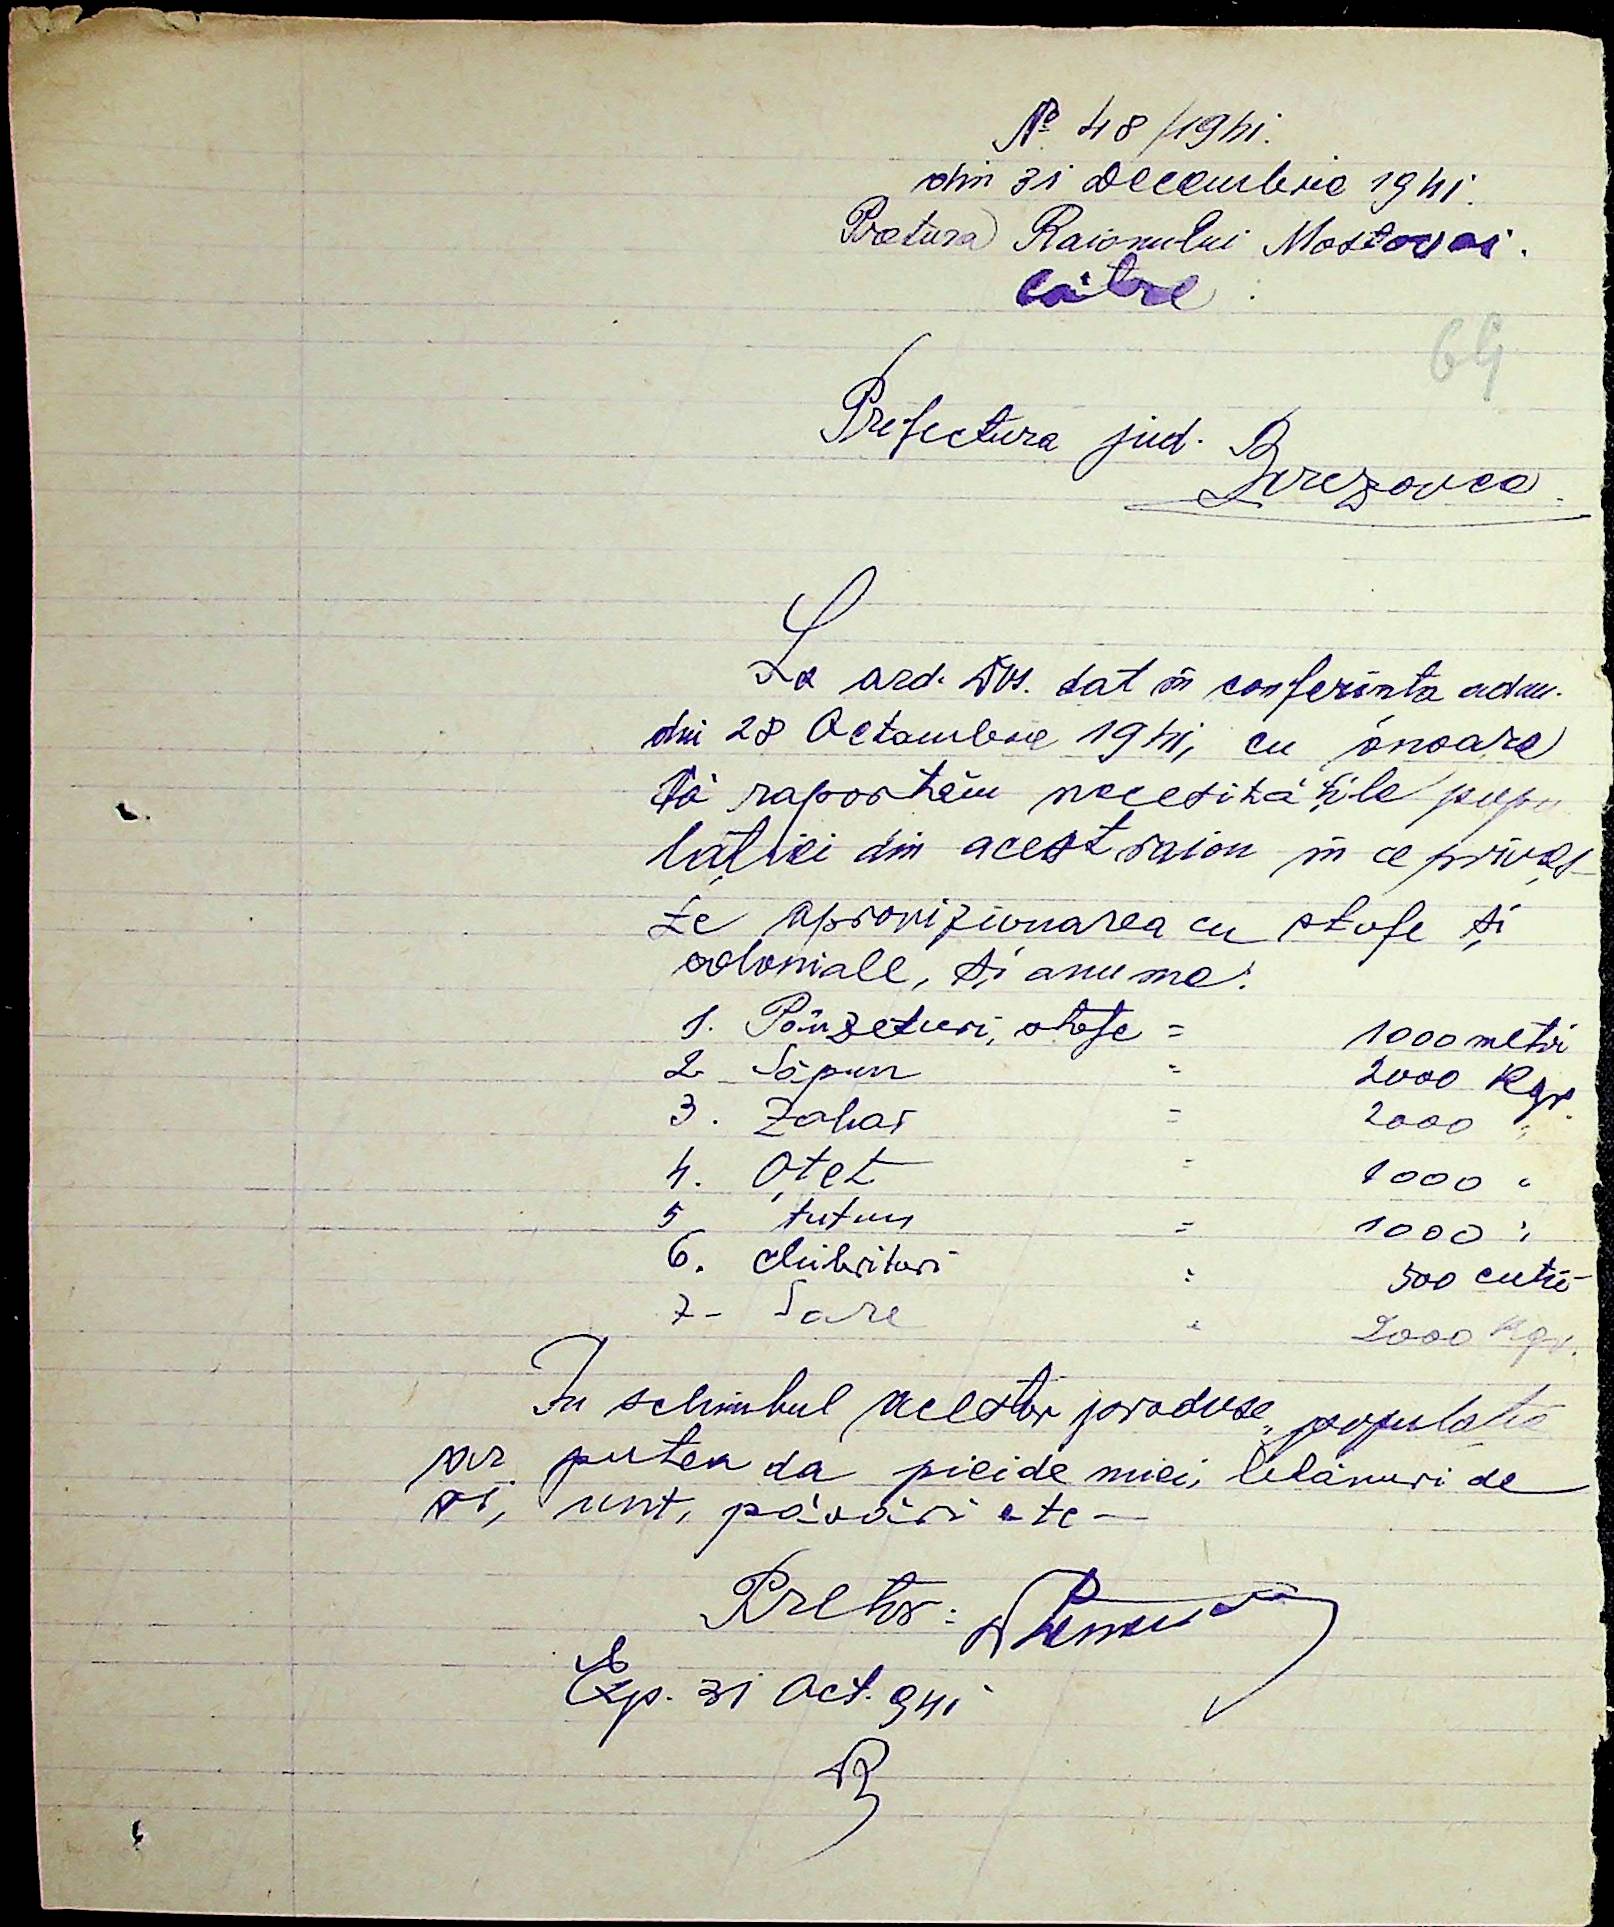 № 48/1941.
din 31 Decembrie 1941.
Pretura Raionului Mostovoi.
către
64
Prefectura jud. Berezovca
La ord. Dvs. dat în conferinta adm.
din 28 Octombrie 1941, cu onoare
Vă raportăm necesitățile popu
lației din acest raion în ce priveș-
te aprovizionarea cu stofe și
coloniale, și anume:
1. Pânzeturi, stofe = 1000 metri
2 Săpun = 2000 Kgr.
3. Zahar = 2000 "
4. Oțet = 1000 "
5 tutun = 1000 "
6. Chibrituri = 500 cutii
7- Sare = 2000 Kgr.
In schimbul acestor produse, populatia
var putea da piei de miei, de
oi, unt, păsări etc-
Pretor:
Exp. 31 Oct. 941